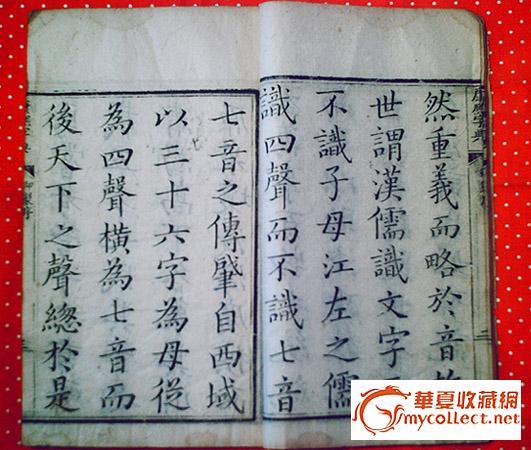 然重義而略於音
世謂漢儒識文字
不識子母江左之儒
識四聲而不識七音
七音之傳肇自西域
以三十六字為母從
為四聲橫為七音而
後天下之聲總於是
華夏收藏網
mycollect.net